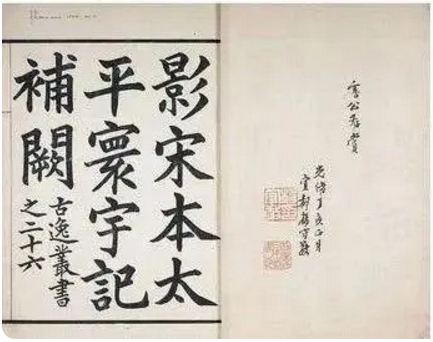 公
光緒丁亥正月
宜都楊守敬
影宋本太
平寰宇記
補闕
古逸叢書
之二十六